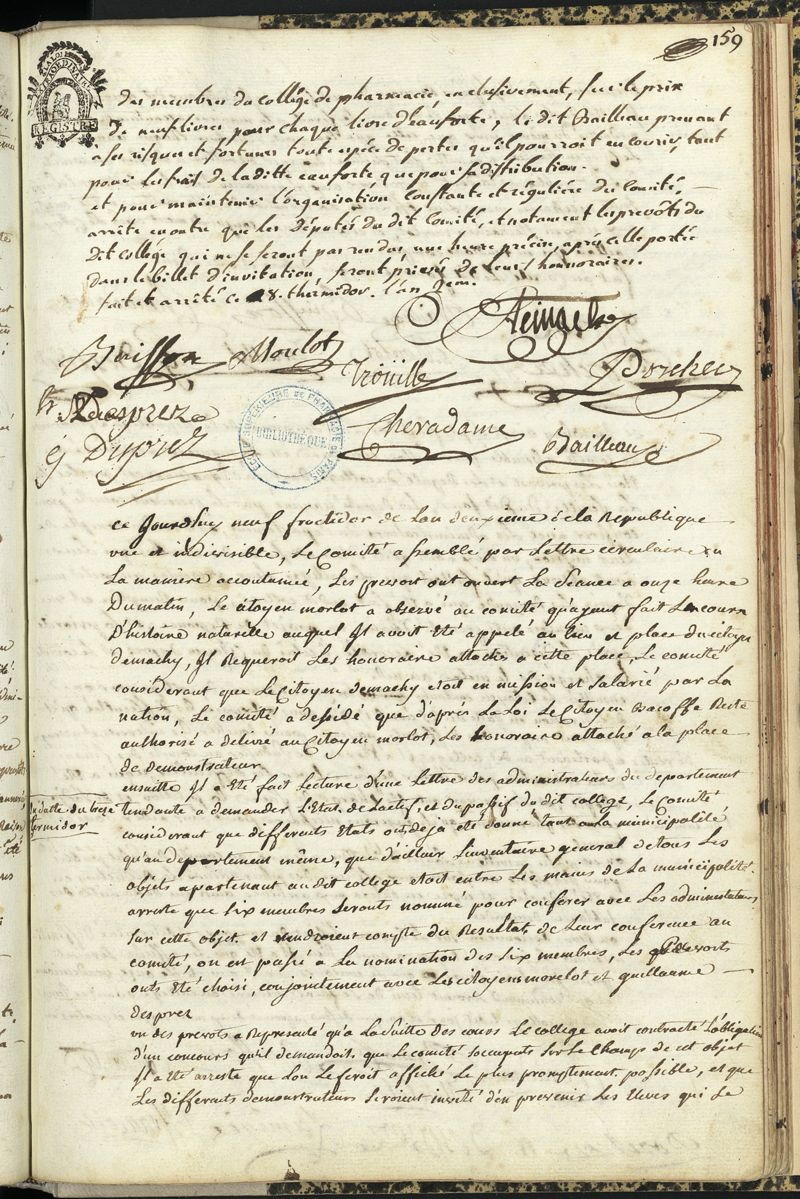 159
REGISTRE
des membres du collége de pharmacie exclusivement, sur le prix
de neuf livres pour chaque livre d'eauforte, le dit Bailleau prenant
a ses risques et fortunes toute espéce de pertes qu'il pourroit encourir, tant
pour les frais de la ditte eauforte que pour sa distribution.
et pour maintenir l'organisation constante et réguliére du Comité,
arrête en outre que les Députés du dit Comité, et notament les prevôts du
dit collége qui ne se seront pas rendus, une heure précise, après celle portée
dans le billet d'invitation, seront privés de leurs honnoraires.
fait et arrêté ce 28. thermidor. l'an 2em.
Buisson Moulot Trouille
Desprez
Duprez Cheradame Bailleau
ECOLE SUPERIEURE DE PHARMACIE DE PARIS
BIBLIOTHÈQUE
Ce Jourdhuy neuf fructidor de Lan deuxieme de la Republique
une et indivisible, Le Comité assemblé par Lettre circulaire en
La maniere accoutumée, Les prevost ont ouvert La Seance a onze heure
Dumatin, Le citoyen morlot a observé au comité qu'ayant fait Le cour
D'histoire naturelle auquel Il avoit été appelé au lieu et place du citoyen
demachy, Il Requeroit Les honoraire attachés a cette place, Le comité
considerant que Le Citoyen demachy etoit en mission et salarié par La
nation, Le comité a dessidé que d'aprés La Loi Le Citoyen Bacoffe Reste
authorisé a delivré au Citoyen morlot, Les honoraire attaché a la place
de demonstrateur
ensuitte Il a été fait Lecture d'une Lettre des administrateurs du departement
en datte du treize
termidor
tendante a demander L'Etat de Lactif, et du passif du dit college, Le Comité
considerant que differents Etats ont deja été donné tant a La municipalité
qu'au departement même, que d'ailleur L'inventaire general de tous Les
objets apartenant au dit college etoit entre Les mains de La municipalité.
arreste que six membres seronts nommé pour conferer avec Les administrateurs
sur cette objet et rendroient compte du Resultat de Leur conference au
comité, on est passé a La nomination des six membres, Les prevosts
onts été choisi, conjointement avec Les citoyens morelot et guillaume
desprez
un des prevots a Representé qu'a La Suitte des cours Le college avoit contracté L'obligation
d'un concours qu'il demandoit que Le comité soccupats sur Le Champs de cet objet
Il a été arresté que Lon Le feroit affiché Le plus promptement possible, et que
Les differents demonstrateurs seroient invité d'en prevenir Les Eleves qui se